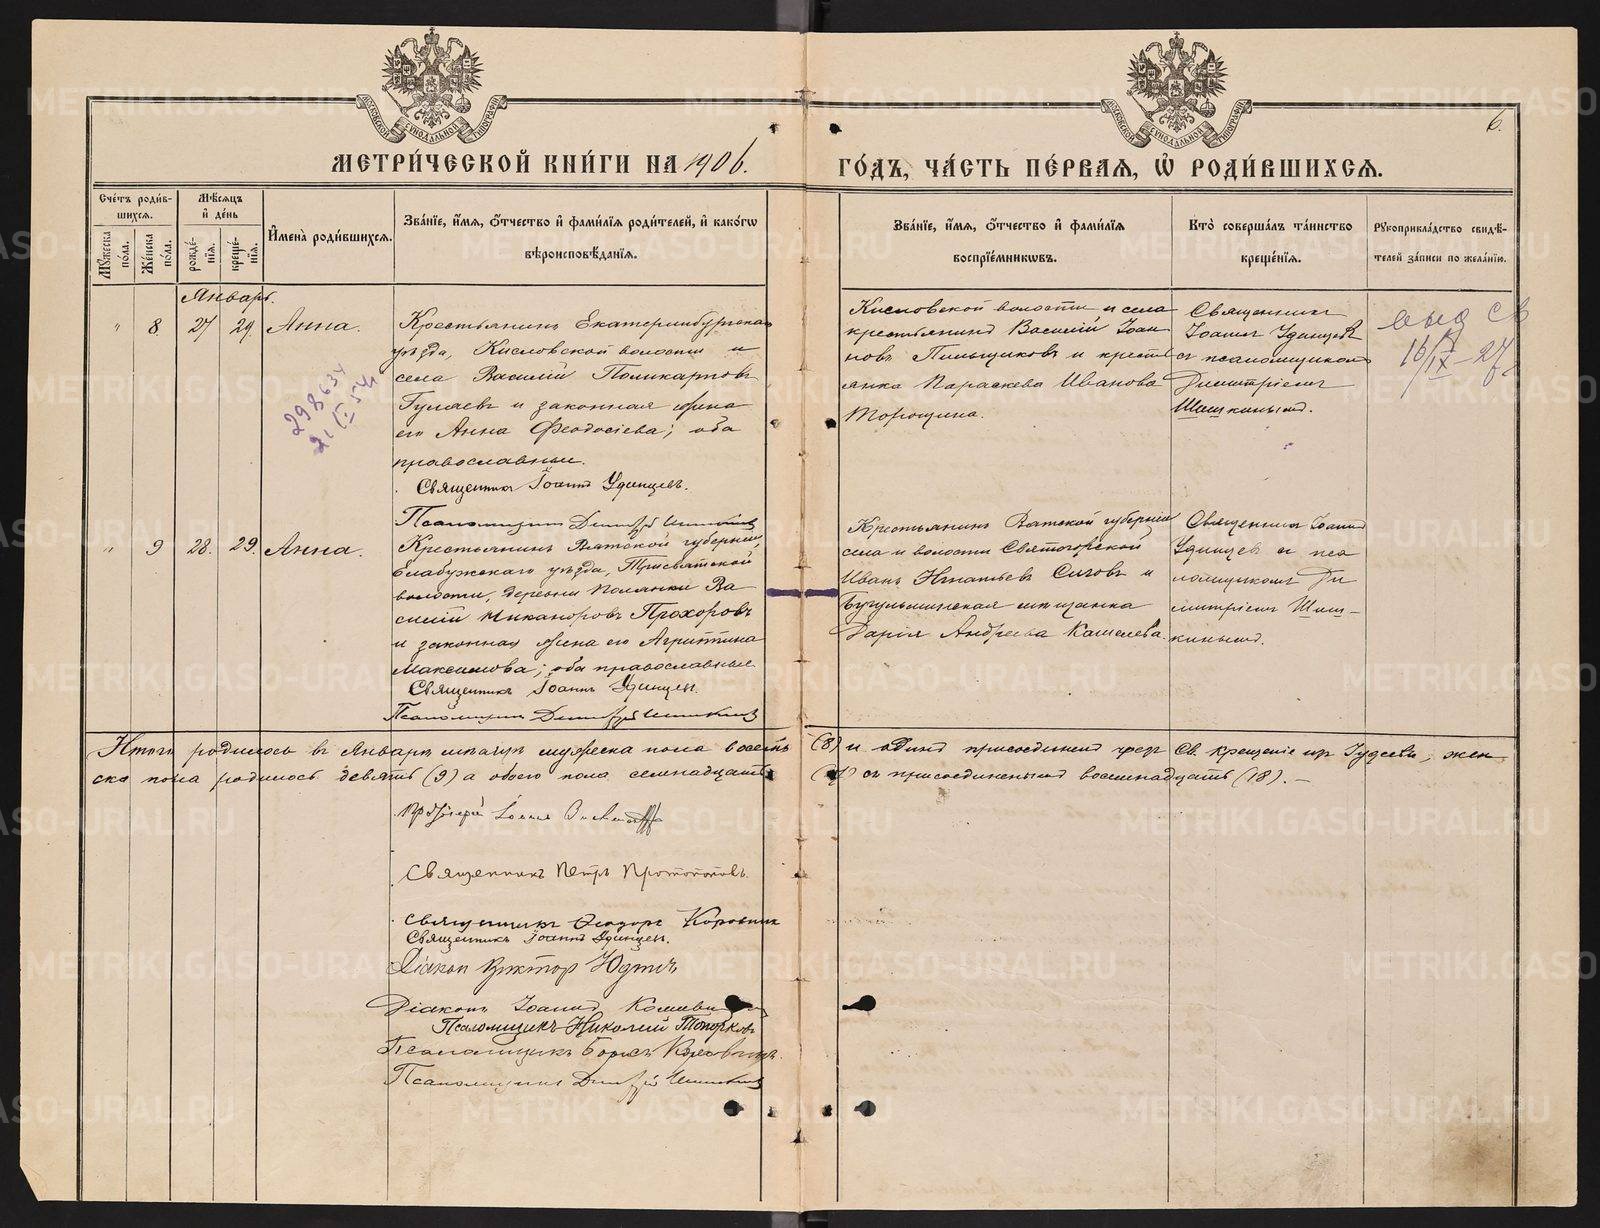 МЕТРИ́ЧЕСКОЙ КНИ́ГИ НА 1906.
ГО́ДЪ, ЧА́СТЬ ПЕ́РВАЯ, Ѽ РОДИ́ВШИХСЯ.
6.
Сче́тъ роди́в-
шихся.
Мꙋ́жеска по́ла.
Же́нска по́ла.
Мѣ́сяцъ
и҆ де́нь
рожде́-
нїя.
креще́-
нїя.
И҆мена̀ роди́вшихся.
Зва́нїе, и҆́мя, ѻ҆́тчество и҆ фами́лїя роди́телей, и҆ како́гѡ
вѣроисповѣ́данїя.
Зва́нїе, и҆́мя, ѻ҆́тчество и҆ фами́лїя
воспрїе́мникѡвъ.
Кто̀ соверша́лъ та́инство
креще́нїя.
Рꙋкоприкла́дство свидѣ́-
телей за́писи по жела́нїю.
Январь.
" 8. 27 29. Анна.
298634
21/I 54
Крестьянинъ Екатеринбургскаго
уѣзда, Кисловской волости и
села Василій Поликарповъ
Гуляевъ и законная жена
его Анна Феодосіева; оба
православные.
Священникъ Іоаннъ Удинцевъ.
Псаломщикъ Димитрій Шишкинъ
Кисловской волости и села
крестьянинъ Василій Іоан
новъ Пильщиковъ и кресть
янка Параскева Иванова
Торощина.
Священникъ
Іоаннъ Удинцевъ
съ псаломщикомъ
Димитріемъ
Шишкинымъ.
выд св
16/IX–27
" 9 28. 29. Анна.
Крестьянинъ Вятской губерніи,
Елабужскаго уѣзда, Трисвятской
волости, деревни Полянки Ва
силій Никаноровъ Прохоровъ
и законная жена его Агриппина
Максимова; оба православные.
Священникъ Іоаннъ Удинцевъ.
Псаломщикъ Димитрій Шишкинъ
Крестьянинъ Вятской губерніи
села и волости Святогорской
Иванъ Игнатьевъ Сизовъ и
Бугульминская мѣщанка
Дарія Андреева Кашелева.
Священникъ Іоаннъ
Удинцевъ и пса
ломщикомъ Ди
митріемъ Шиш-
кинымъ.
Итого родилось въ Январѣ мѣсяцѣ мужеска пола восемь (8) и одинъ присоединенъ чрезъ Св. крещеніе изъ Іудеевъ, жен
ска пола родилось девять (9) а обоего пола семнадцать (17) съ присоединеннымъ восемнадцать (18). –
Протоіерей Іоаннъ
Священникъ Петръ Протопоповъ.
Священникъ Ѳеодоръ Коровинъ
Священникъ Іоаннъ Удинцевъ.
Діаконъ Викторъ Юдинъ
Діаконъ Іоаннъ
Псаломщикъ Николай Топорковъ
Псаломщикъ Борисъ
Псаломщикъ Димитрій Шишкинъ
METRIKI.GASO-URAL.RU